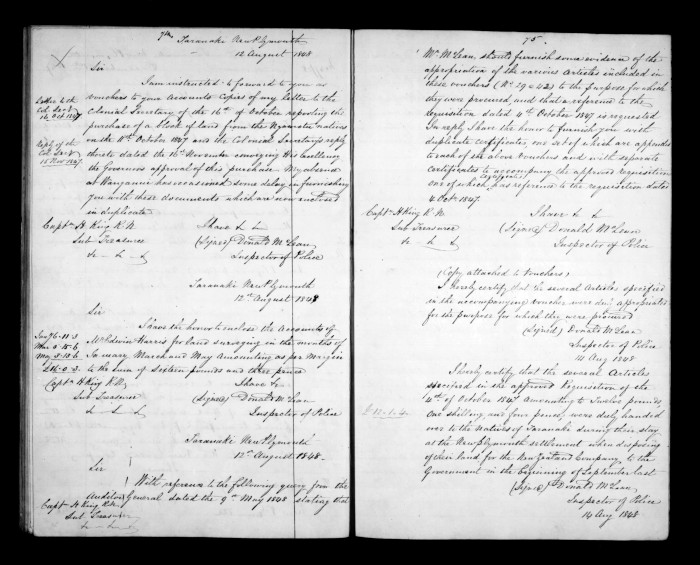 74.
Taranaki New Plymouth
12 August 1848
Sir
I am instructed to forward to you as
vouchers to your Accounts Copies of my letter to the
Letter to the
Col. Secy
16 Oct 1847
Colonial Secretary of the 16th of October reporting the
purchase of a block of land from the Natives
on the 11th October 1847 and the Colonial Secretary's reply
Reply of the
Col. Secy
15 Nov 1847
thereto dated the 16th November conveying His Excellency
the Governors approval of this purchase. My absence
at Wanganui has occasioned some delay in furnishing
you with these documents which are now enclosed
in duplicate
Captn H King R.N. I have &c &c
Sub Treasurer (Signed) Donald McLean
&c - &c - &c Inspector of Police
Taranaki New Plymouth
12th August 1848
Sir
I have the honor to enclose the Accounts of
Mr Edwin Harris for land surveying in the months of
January March and May amounting as per Margin
to the sum of Sixteen pounds and three pence
Captn H King R.N. I have &c
Sub Treasurer (Signed) Donald McLean
&c - &c - &c Inspector of Police
Taranaki New Plymouth
12th August 1848 -
Sir
With reference to the following query from the
Auditor General dated the 9th May 1848 stating that
Captn H King R.N.
Sub Treasurer
&c - &c - &c
75.
Mr McLean should furnish some evidence of the
appropriation of the various Articles included in
these vouchers (Nos 29 & 42) to the purpose for which
they were procured and that a reference to the
requisition dated 4th October 1847 is requested
In reply I have the honor to furnish you with
duplicate certificates, one set of which are appended
to each of the above vouchers and with separate
certificates to accompany the approved requisition
one of which certificates has reference to the requisition dated
4 Octr 1847.
Captn H King R.N. I have &c &c
Sub Treasurer (Signed) Donald McLean
&c - &c - &c Inspector of Police
(Copy attached to Vouchers)
I hereby certify that the several Articles specified
in the accompanying voucher were duly appropriated
for the purpose for which they were procured
(Signed) Donald McLean
Inspector of Police
14 Aug 1848
I hereby certify that the several Articles
specified in the approved Requisition of the
4th of October 1847 amounting to Twelve pounds
£12..1..4.
one shilling and four pence, were duly handed
over to the Natives of Taranaki during their stay
at the New Plymouth settlement when disposing
of their land for the New Zealand Company, to the
Government in the beginning of September last
(Signed) Donald McLean
Inspector of Police
14 Aug 1848